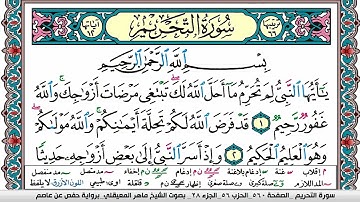 سُورَةُ التَّحْرِيمِ
بِسْمِ اللَّهِ الرَّحْمَٰنِ الرَّحِيمِ
يَا أَيُّهَا النَّبِيُّ لِمَ تُحَرِّمُ مَا أَحَلَّ اللَّهُ لَكَ تَبْتَغِي مَرْضَاتَ أَزْوَاجِكَ وَاللَّهُ
غَفُورٌ رَّحِيمٌ ١ قَدْ فَرَضَ اللَّهُ لَكُمْ تَحِلَّةَ أَيْمَانِكُمْ وَاللَّهُ مَوْلَاكُمْ
وَهُوَ الْعَلِيمُ الْحَكِيمُ ٢ وَإِذْ أَسَرَّ النَّبِيُّ إِلَىٰ بَعْضِ أَزْوَاجِهِ حَدِيثًا
سورة التحريم الصفحة ٥٦٠ الحزب ٥٦ الجزء ٢٨ بصوت الشيخ ماهر المعيقلي برواية حفص عن عاصم